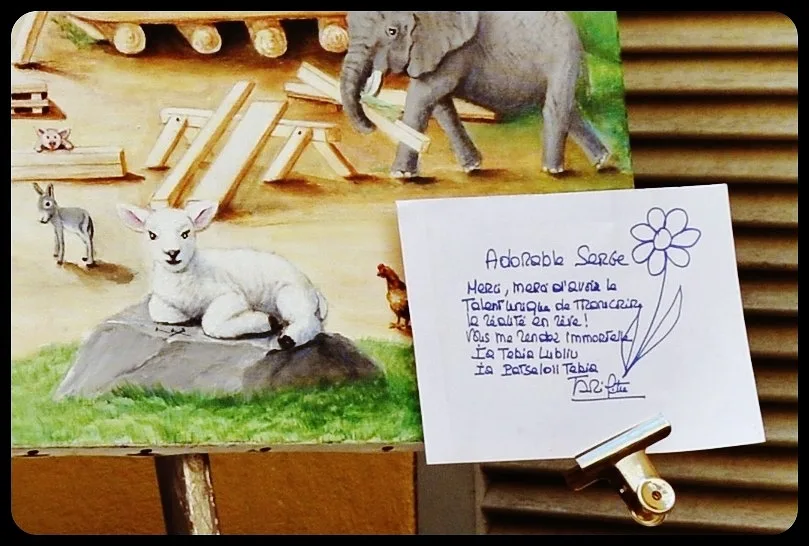 Adorable Serge
Merci, merci d'avoir le
Talent unique de Transcrire
la réalité en rêve!
Vous me rendez immortelle
Ia Tebia Lubliu
Ia Batseloii Tebia